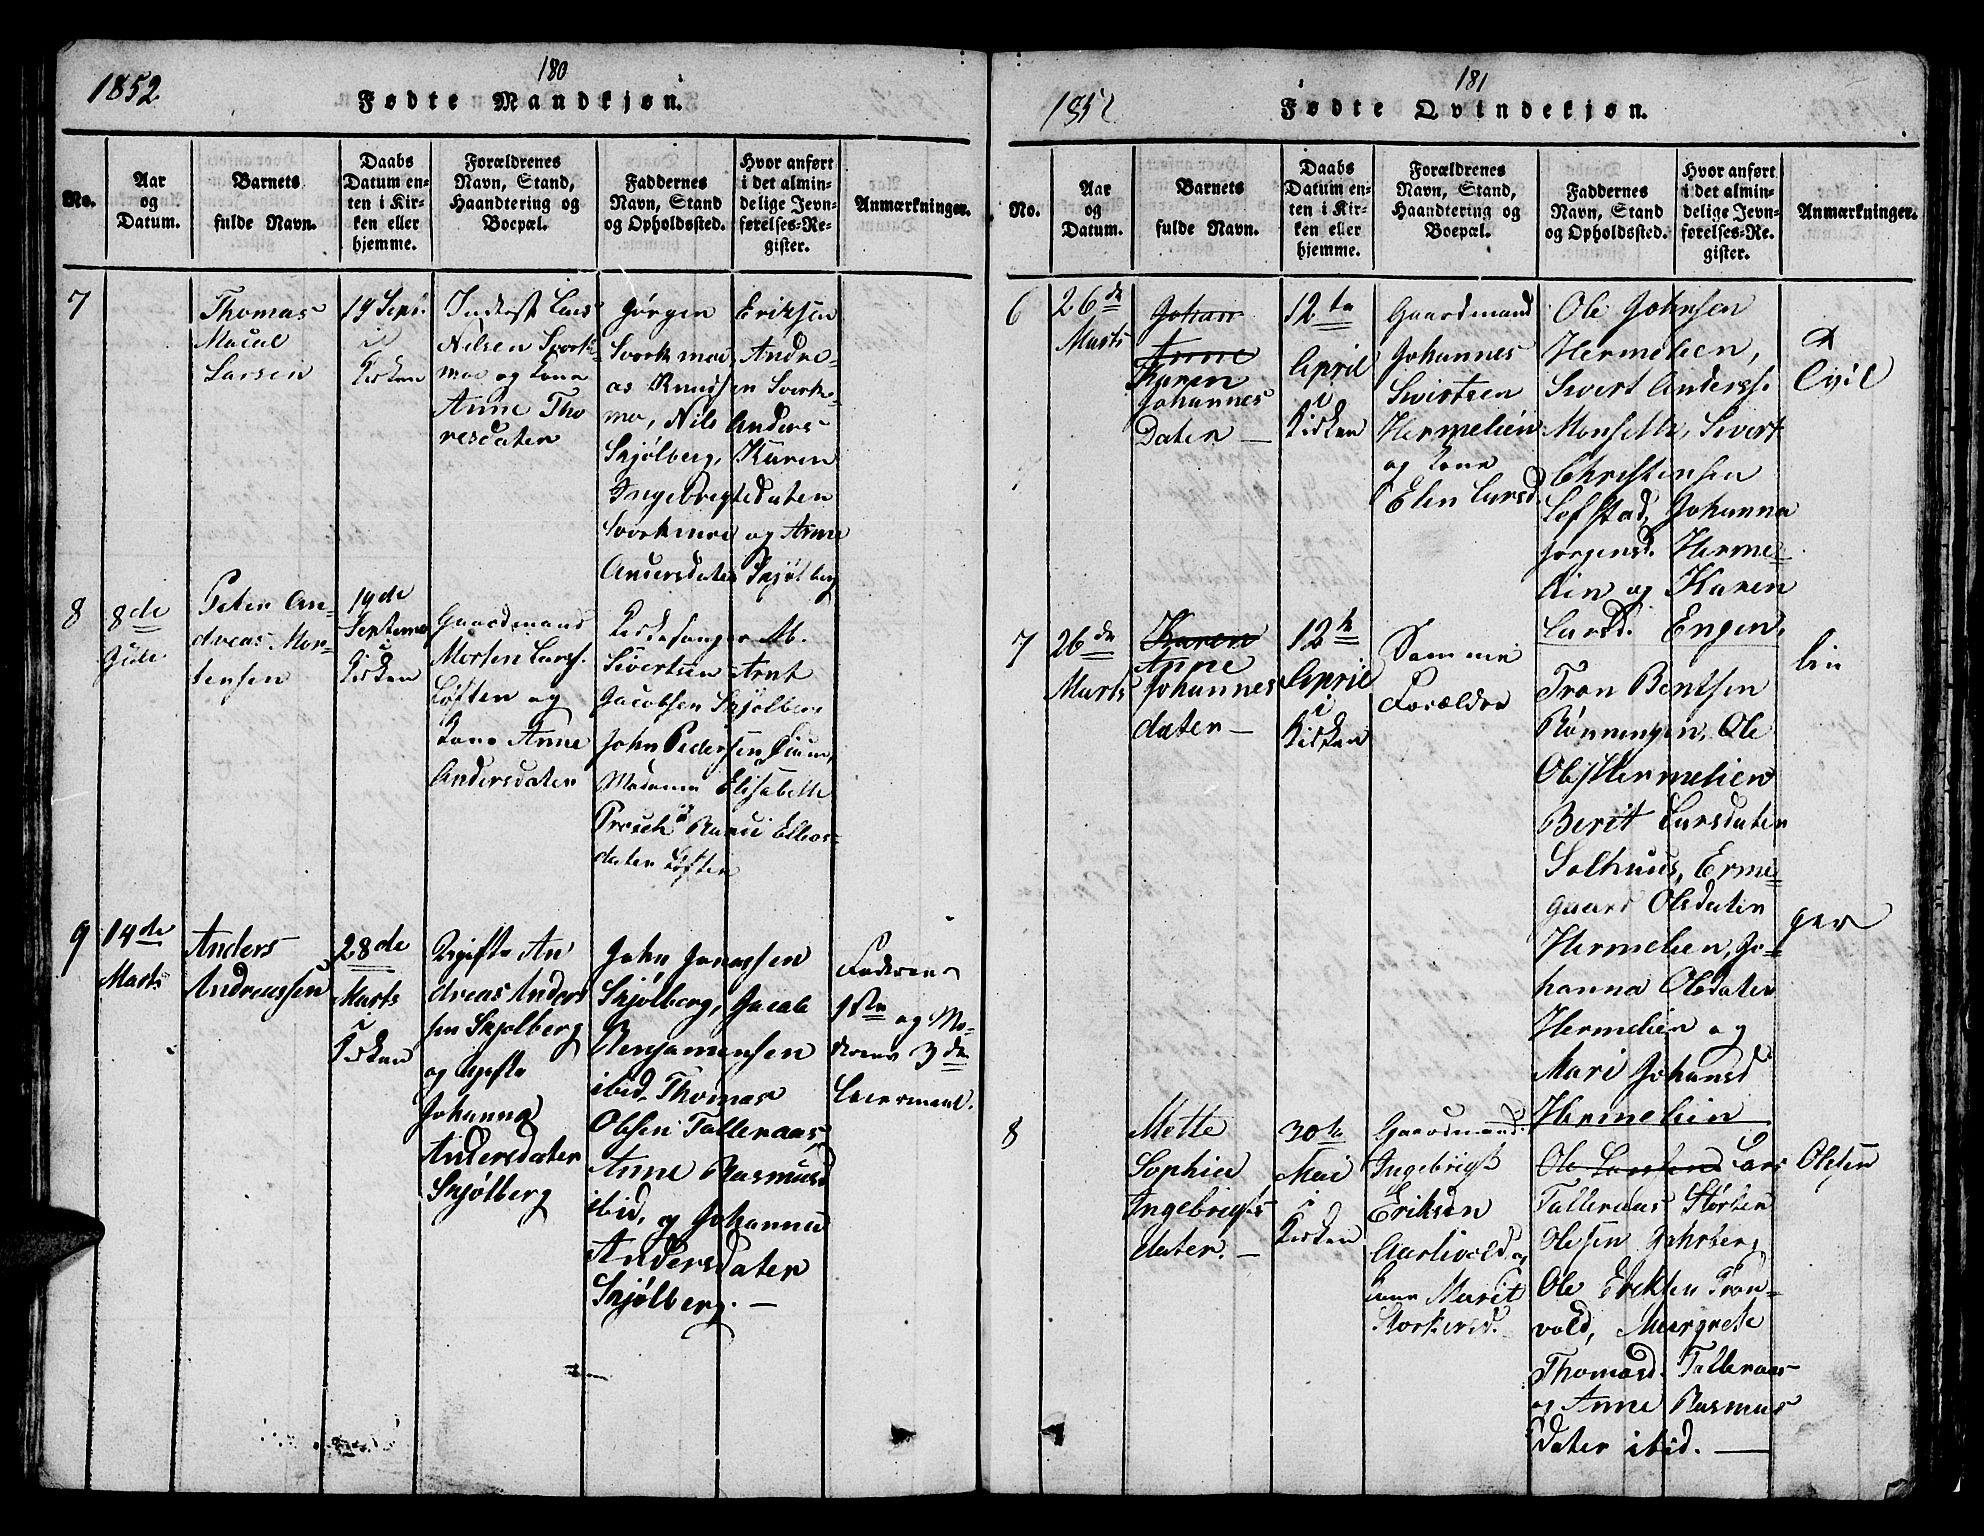 1852
180
Fødte Mandkjøn.
No.
Aar
og
Datum.
Barnets
fulde Navn.
Daabs
Datum en-
ten i Kir-
ken eller
hjemme.
Forældrenes
Navn, Stand,
Haandtering og
Boepæl.
Faddernes
Navn, Stand
og Opholdssted.
Hvor anført
i det almin-
delige Jevn-
førelses-Re-
gister.
Anmærkninger.
7
Thomas
Larsen
19 Sept.
i
Kirken
Inderst Lars
Nilsen Svork-
moe og Kone
Anne Tho
resdater
Jørgen Eriksen
Svorkmoe, Andre-
as Knudsen Svork-
mo, Nils Anders
Skjølberg, Karen
Ingebrigtsdater
Svorkmoe og Anne
Andersdater Skjølberg
8
8de
Peter An-
dreas Mor-
tensen
19de
September
i
Kirken
Gaardmand
Morten Larss.
Løften og
Kone Anne
Andersdater
Kirkesanger M.
Sivertsen Arnt
Jacobsen Skjølberg
John Pedersen
Madame Elisabeth
dater Løften
9
14de
Marts
Anders
Andreassen
28de
Marts
i
Kirken
Ugifte An
dreas Anders
sen Skjølberg
og ugifte
Johanna
Andersdater
Skjølberg
John Jonassen
Skjølberg, Jacob
Benjaminsen
ibid, Thomas
Olsen Talleraas,
Anne Rasmusd
ibid, og Johanna
Andersdater
Skjølberg. —
Faderens
1ste og Mo-
derens 3de
Leiermaal.
1852
181
Fødte Qvindekjøn.
No.
Aar
og
Datum.
Barnets
fulde Navn.
Daabs
Datum en-
ten i Kir-
ken eller
hjemme.
Forældrenes
Navn, Stand,
Haandtering og
Boepæl.
Faddernes
Navn, Stand
og Opholdssted.
Hvor anført
i det almin-
delige Jevn-
førelses-Re-
gister.
Anmærkninger.
6
26de
Marts
Johan
Anne
Karen
Johannes
Dater —
12te
April
i
Kirken
Gaardmand
Johannes
Sivertsen
Hermelien
og Kone
Elen Larsd
Ole Johnsen
Hermelien,
Sivert Anderss.
Monseth, Sivert
Christensen
Lefstad, Johanna
Jorgensd. Herme-
lien og Karen
Larsd. Engen.
7
26de
Marts
Karen
Anne
Johannes
dater —
12te
April
i
Kirken
Samme
Forældre
Tron Bentsen
Rønningen, Ole
Ols. Hermelien
Berit Larsdater
Solhuus, Erme-
gaard Olsdater
Hermelien, Jo-
hanna Olsdater
Hermelien og
Mari Johansd
Hermelien
lin
ger
8
Mette
Sophia
Ingebrigts
dater. —
30te
Mai
i
Kirken
Gaardmand
Ingebrigt
Eriksen
Aarlivold og
Kone Marit
Storkersd.
Ole Larsen Lars Olsen
Talleraas Størker
Olsen
Ole Eriksen Tron-
vold, Margrete
Thomasd. Talleraas
og Anne Rasmus
dater ibid. —